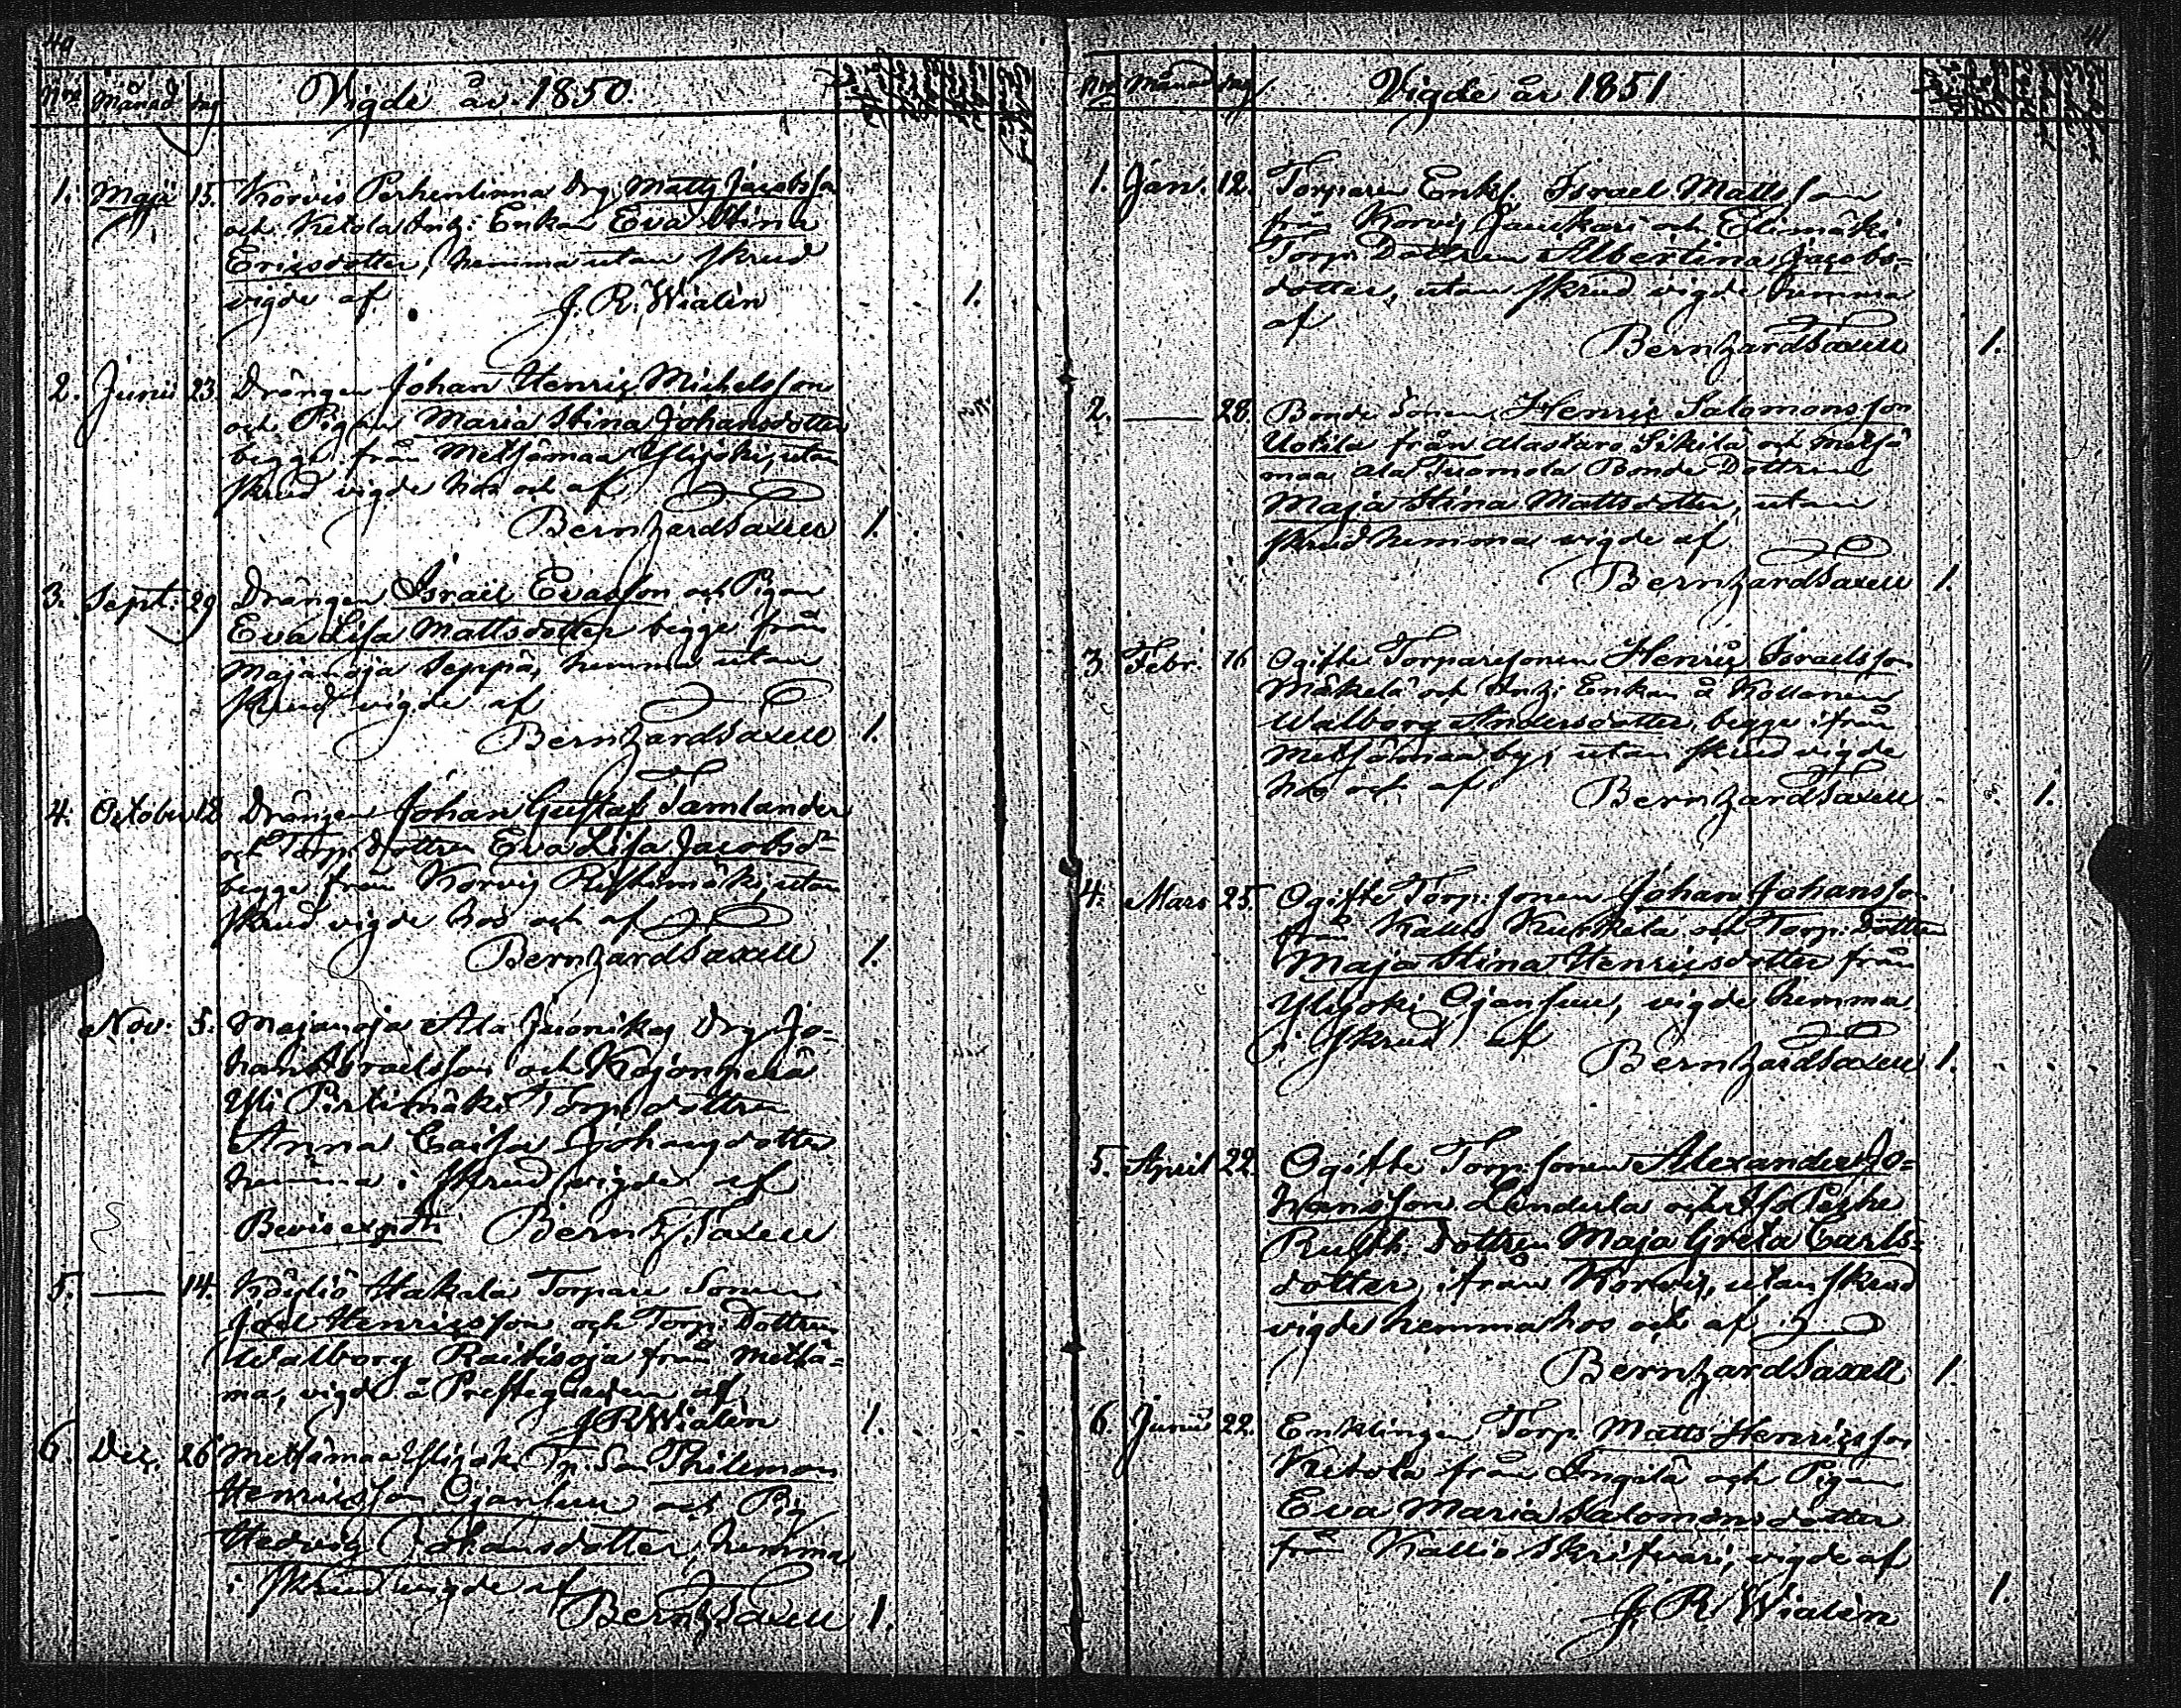 40
Nro Månad dag Vigde år 1850.
1. Maji 15. Korvis Perhenlinna Drg. Matts Jacobsson
och Ketola Inh: Enkan Eva Stina
Ericsdotter, hemma utan skrud
vigde af J. R. Wialèn 1.
2. Junii 23. Drängen Johan Henric Michelsson
och Pigan Maria Stina Johansdotter
bägge från Metsämaa Ylijoki, utan
skrud vigde hos och af
Bernh ard Saxell 1.
3. Sept: 29 Drängen Israel Evasson och Pigan
Eva Lisa Mattsdotter bägge från
Majanoja Seppä, hemma utan
skrud vigde af
Bernhard Saxell 1.
4. October 12 Drängen Johan Gustaf Tamlander
och Torp. Dottren Eva Lisa Jacobsd:
bägge från Korvis Riihimäki, utan
skrud vigde hos och af
Bernhard Saxell 1.
Nov. 5. Majanoja Ala Drg Jo-
han Israelsson och Kojonperä
Yli Pirtimäki Torp. dottren
Anna Caisa Johansdotter
hemma i skrud vigde af
Bevis Bernh. Saxell
5. — 14. Köyliö Hakala Torpare Sonen
Joel Henricsson och Torp. Dottren
Walborg Raitisoja från Metsä-
ma, vigde å Prestegården af
J R Wialèn 1.
6. Dec. 26 Metsämaa Ylijoki Tp. Son Philemon
Henricsson Ojansuu och Pig
Hedvig Johansdotter, hemma
i skrud vigde af
Bernh. Saxell 1.
41
Nro Månad dag Vigde år 1851
1. Jan. 12. Torparen Enkl. Israel Mattsson
från Korvis och Elimäki
Torp. Dottren Albertina Jacobs-
dotter, utan skrud vigde hemma
af
Bernhard Saxell 1.
2. — 28. Bonde Sonen Henric Salomonsson
Uotila från Alastaro och Metsä
maa Ala Tuomola Bonde Dottren
Maja Stina Mattsdotter, utan
skrud hemma vigde af
Bernhard Saxell 1.
3 Febr. 16 Ogifte Torparesonen Henric Israelsson
Mäkelä och Inh: Enkan å
Walborg Andersdotter, bägge ifrån
Metsämaa by, utan skrud vigde
hos och af Bernhard Saxell 1.
4. Mars 25. Ogifte Torp: sonen Johan Johansson
från Kallio och Torp: Dottren
Maja Stina Henricsdotter från
Ylijoki Ojansuu, vigde hemma
i skrud af
Bernhard Saxell 1.
5. April 22. Ogifte Torp: sonen Alexander Jo-
hansson och
Dottren Maja Greta Carls-
dotter, ifrån Korvis, utan skrud
vigde hemma hos och af
Bernhard Saxell 1.
6. Junii 22. Enklingen Torp. Matts Henricsson
Ketola från och Pigan
Eva Maria Salomonsdotter
från Kallio Skrifvari, vigde af
J. R. Wialèn 1.